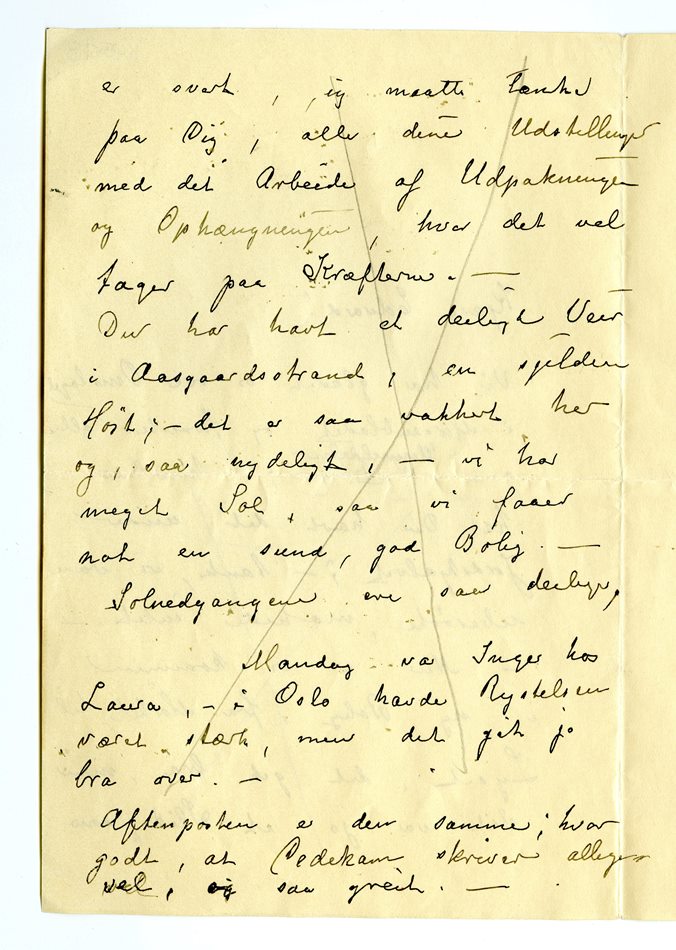 er svart, jeg maatte tænke
paa Dig, alle dene Udstillinger
med det Arbeide af Udpakningen
og Ophængningen, hvor det vel
tager paa Kræfterne. —
Du har havt et deiligt Veir
i Aasgaardsstrand, en sjelden
Høst; – det er saa vakkert her
og, saa nydeligt, — vi har
meget Sol, saa vi faaer
nok en sund, god Bolig. —
Solnedgangene ere saa deilige,
Mandag var Inger hos
Laura, – i Oslo havde Rystelsen
været stærk, men det gik jo
bra over. —
Aftenposten er den samme; hvor
godt, at Pedekam skriver allige-
vel, og saa greit. —